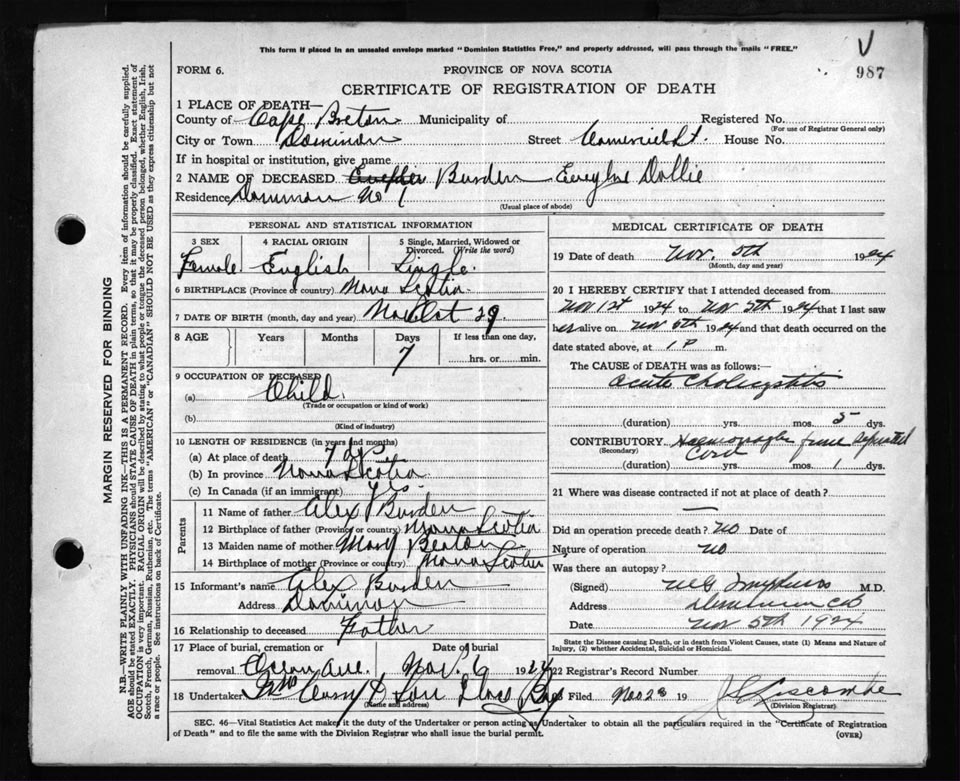 This form if placed in an unsealed envelope marked "Dominion Statistics Free," and properly addressed, will pass through the mails "FREE."
V
987
FORM 6.
PROVINCE OF NOVA SCOTIA
CERTIFICATE OF REGISTRATION OF DEATH
1 PLACE OF DEATH—
County of Cape Breton Municipality of Registered No.
(For use of Registrar General only)
City or Town Dominion Street Comericial St. House No.
If in hospital or institution, give name
2 NAME OF DECEASED. Burden Dollie
Residence Dominion No 1
(Usual place of abode)
PERSONAL AND STATISTICAL INFORMATION
3 SEX 4 RACIAL ORIGIN 5 Single, Married, Widowed or Divorced. (Write the word)
Female English Single.
6 BIRTHPLACE (Province or country) Nova Scotia
7 DATE OF BIRTH (month, day and year) Oct 29.
8 AGE Years Months Days If less than one day,
7 hrs. or min.
9 OCCUPATION OF DECEASED
(a) Child
(Trade or occupation or kind of work)
(b)
(Kind of industry)
10 LENGTH OF RESIDENCE (in years and months)
(a) At place of death 7 dys
(b) In province Nova Scotia
(c) In Canada (if an immigrant)
Parents
11 Name of father Alex Burden
12 Birthplace of father (Province or country) Nova Scotia
13 Maiden name of mother Mary Beaton
14 Birthplace of mother (Province or country) Nova Scotia
15 Informant's name Alex Burden
Address Dominion
16 Relationship to deceased Father
17 Place of burial, cremation or Date of burial
removal Ocean Ave. Nov. 6 1924
18 Undertaker & Son Glace Bay
(Name and address)
MEDICAL CERTIFICATE OF DEATH
19 Date of death Nov. 5th 1924
(Month, day and year)
20 I HEREBY CERTIFY that I attended deceased from
Nov 1st 1924 to Nov 5th 1924 that I last saw
her alive on Nov 5th 1924 and that death occurred on the
date stated above, at 1 P m.
The CAUSE of DEATH was as follows:—
Acute Cholicystitis
(duration) yrs. mos. 5 dys.
CONTRIBUTORY
(Secondary) Cord
(duration) yrs. mos. 1 dys.
21 Where was disease contracted if not at place of death?
—
Did an operation precede death? No Date of
Nature of operation no
Was there an autopsy?
(Signed) M.D.
Address Dominion CB
Date Nov 5th 1924
State the Disease causing Death, or in Death from Violent Causes, state (1) Means and Nature of Injury, (2) whether Accidental, Suicidal or Homicidal.
22 Registrar's Record Number
Filed Nov 28 19 Liscombe
(Division Registrar)
SEC. 46—Vital Statistics Act makes it the duty of the Undertaker or person acting as Undertaker to obtain all the particulars required in the "Certificate of Registration
of Death" and to file the same with the Division Registrar who shall issue the burial permit.
(OVER)
MARGIN RESERVED FOR BINDING
N.B.—WRITE PLAINLY WITH UNFADING INK—THIS IS A PERMANENT RECORD. Every item of information should be carefully supplied.
AGE should be stated EXACTLY. PHYSICIANS should STATE CAUSE OF DEATH in plain terms, so that it may be properly classified. Exact statement of
OCCUPATION is very important. RACIAL ORIGIN will be described by stating to what people or tongue the deceased person belonged, whether English, Irish,
Scotch, French, German, Russian, Ruthenian, etc. The terms "AMERICAN" or "CANADIAN" SHOULD NOT BE USED as they express citizenship but not
a race or people. See instructions on back of Certificate.